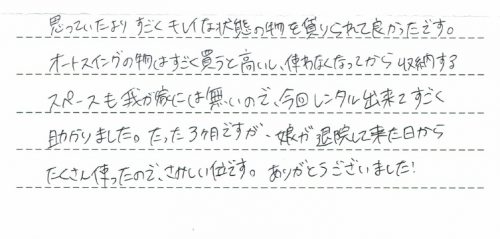 思っていたより すごくキレイな状態の物を借りられて良かったです。
オートスイングの物はすごく買うと高いし、使わなくなってから収納する
スペースも我が家には無いので、今回レンタル出来てすごく
助かりました。たった3ヶ月ですが、娘が退院して来た日から
たくさん使ったので、さみしい位です。ありがとうございました!